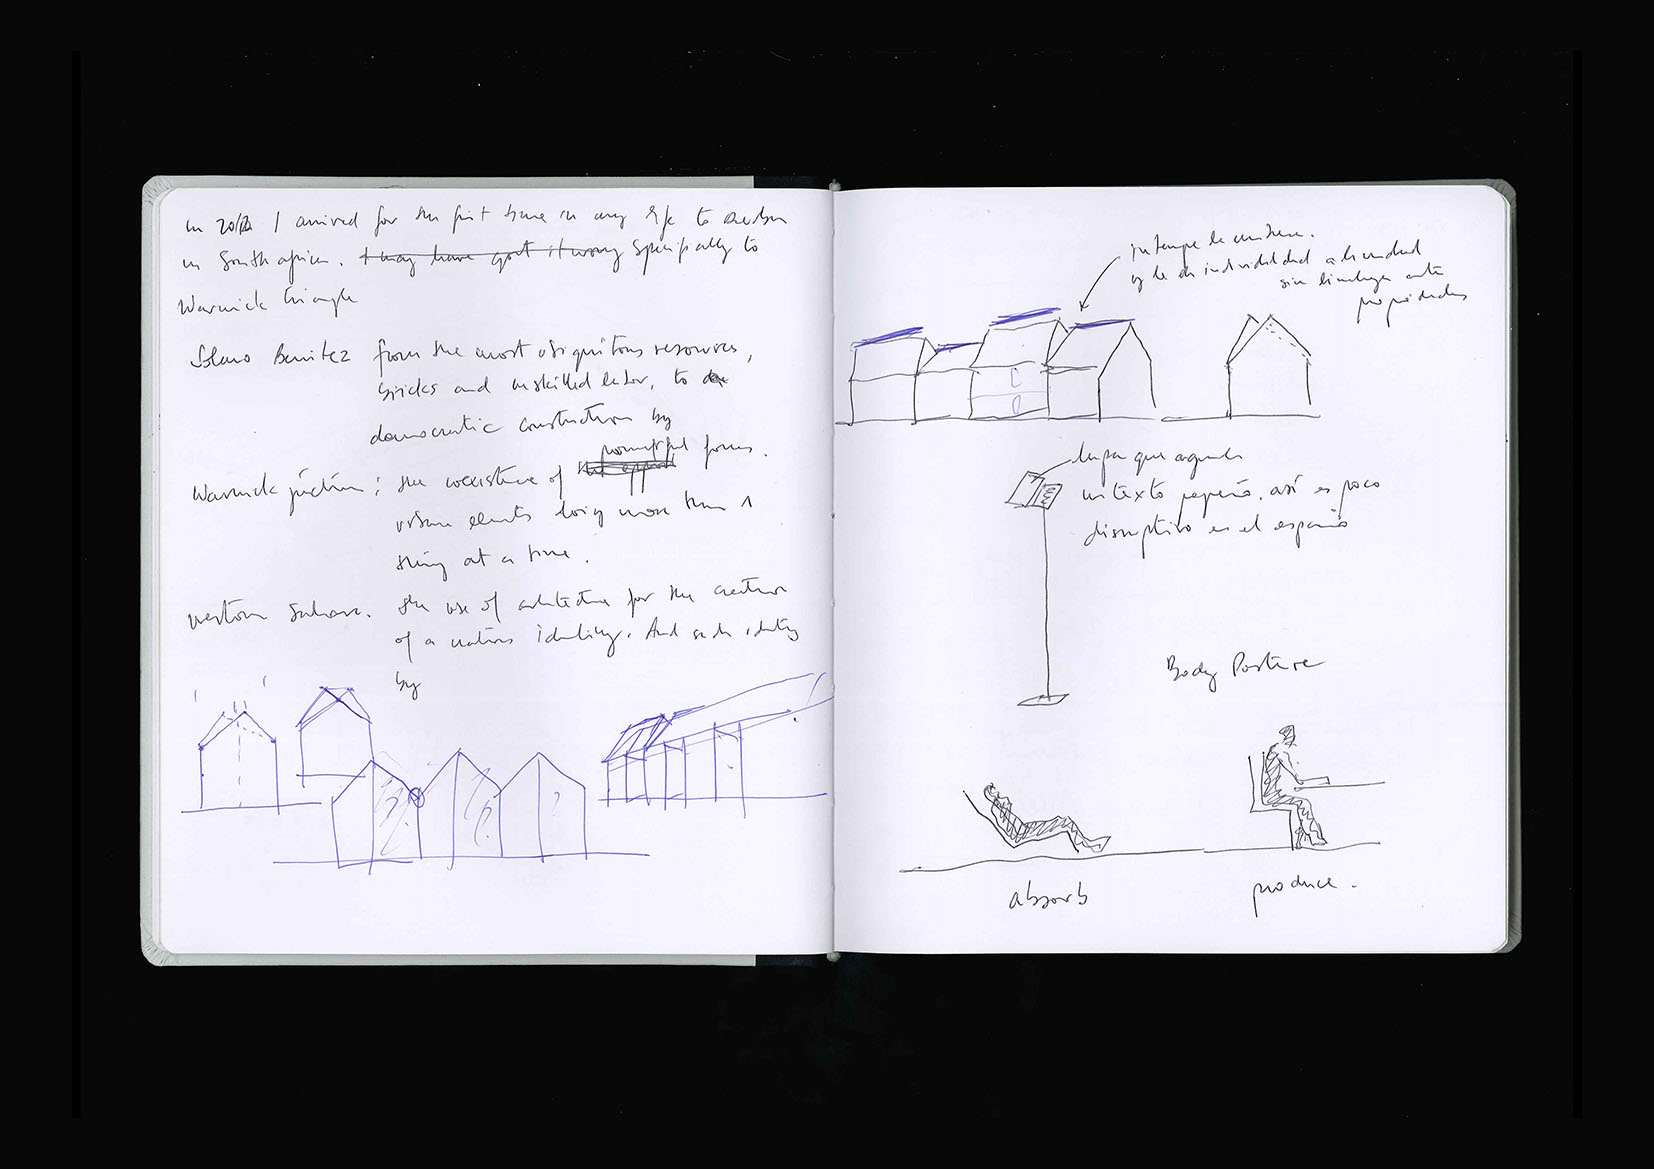 I arrived for the first time in my life to
in South Africa. I may have got it wrong specifically to
Warwick triangle
Solano Benitez from the most ubiquitous resources,
bricks and unskilled labor, to
democratic construction by
powerful forms.
Warwick junction: the coexistence of
urban elements doing more than 1
thing at a time.
western Sahara. the use of architecture for the creation
of a nations identity. And such identity
by
y le da individualidad a la unidad
sin
propiedades
lupa que agranda
un texto pequeño, así es poco
disruptivo en el espacio
Body Posture
absorb
produce.